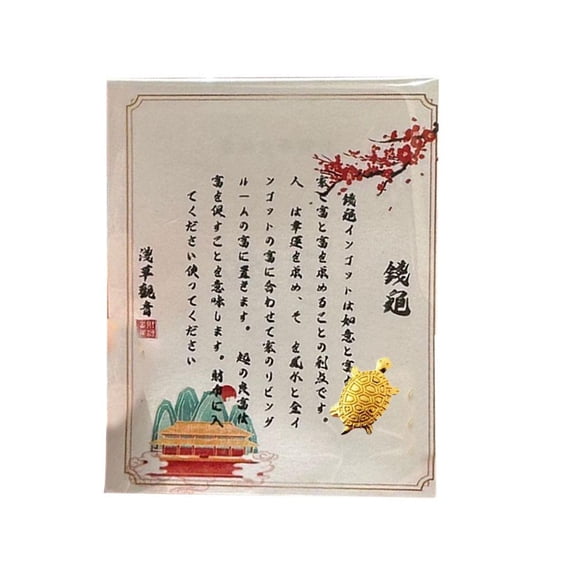 錢龜
錢龜インゴットは如意と富
家で富と富を求めることの利点です。
人 は幸運を求め、そ を風水と金イ
ンゴットの富に合わせて家のリビング
ルームの富に置きます。 超の良富は
富を促すことを意味します。財布に入
てください使ってください
淺草觀音